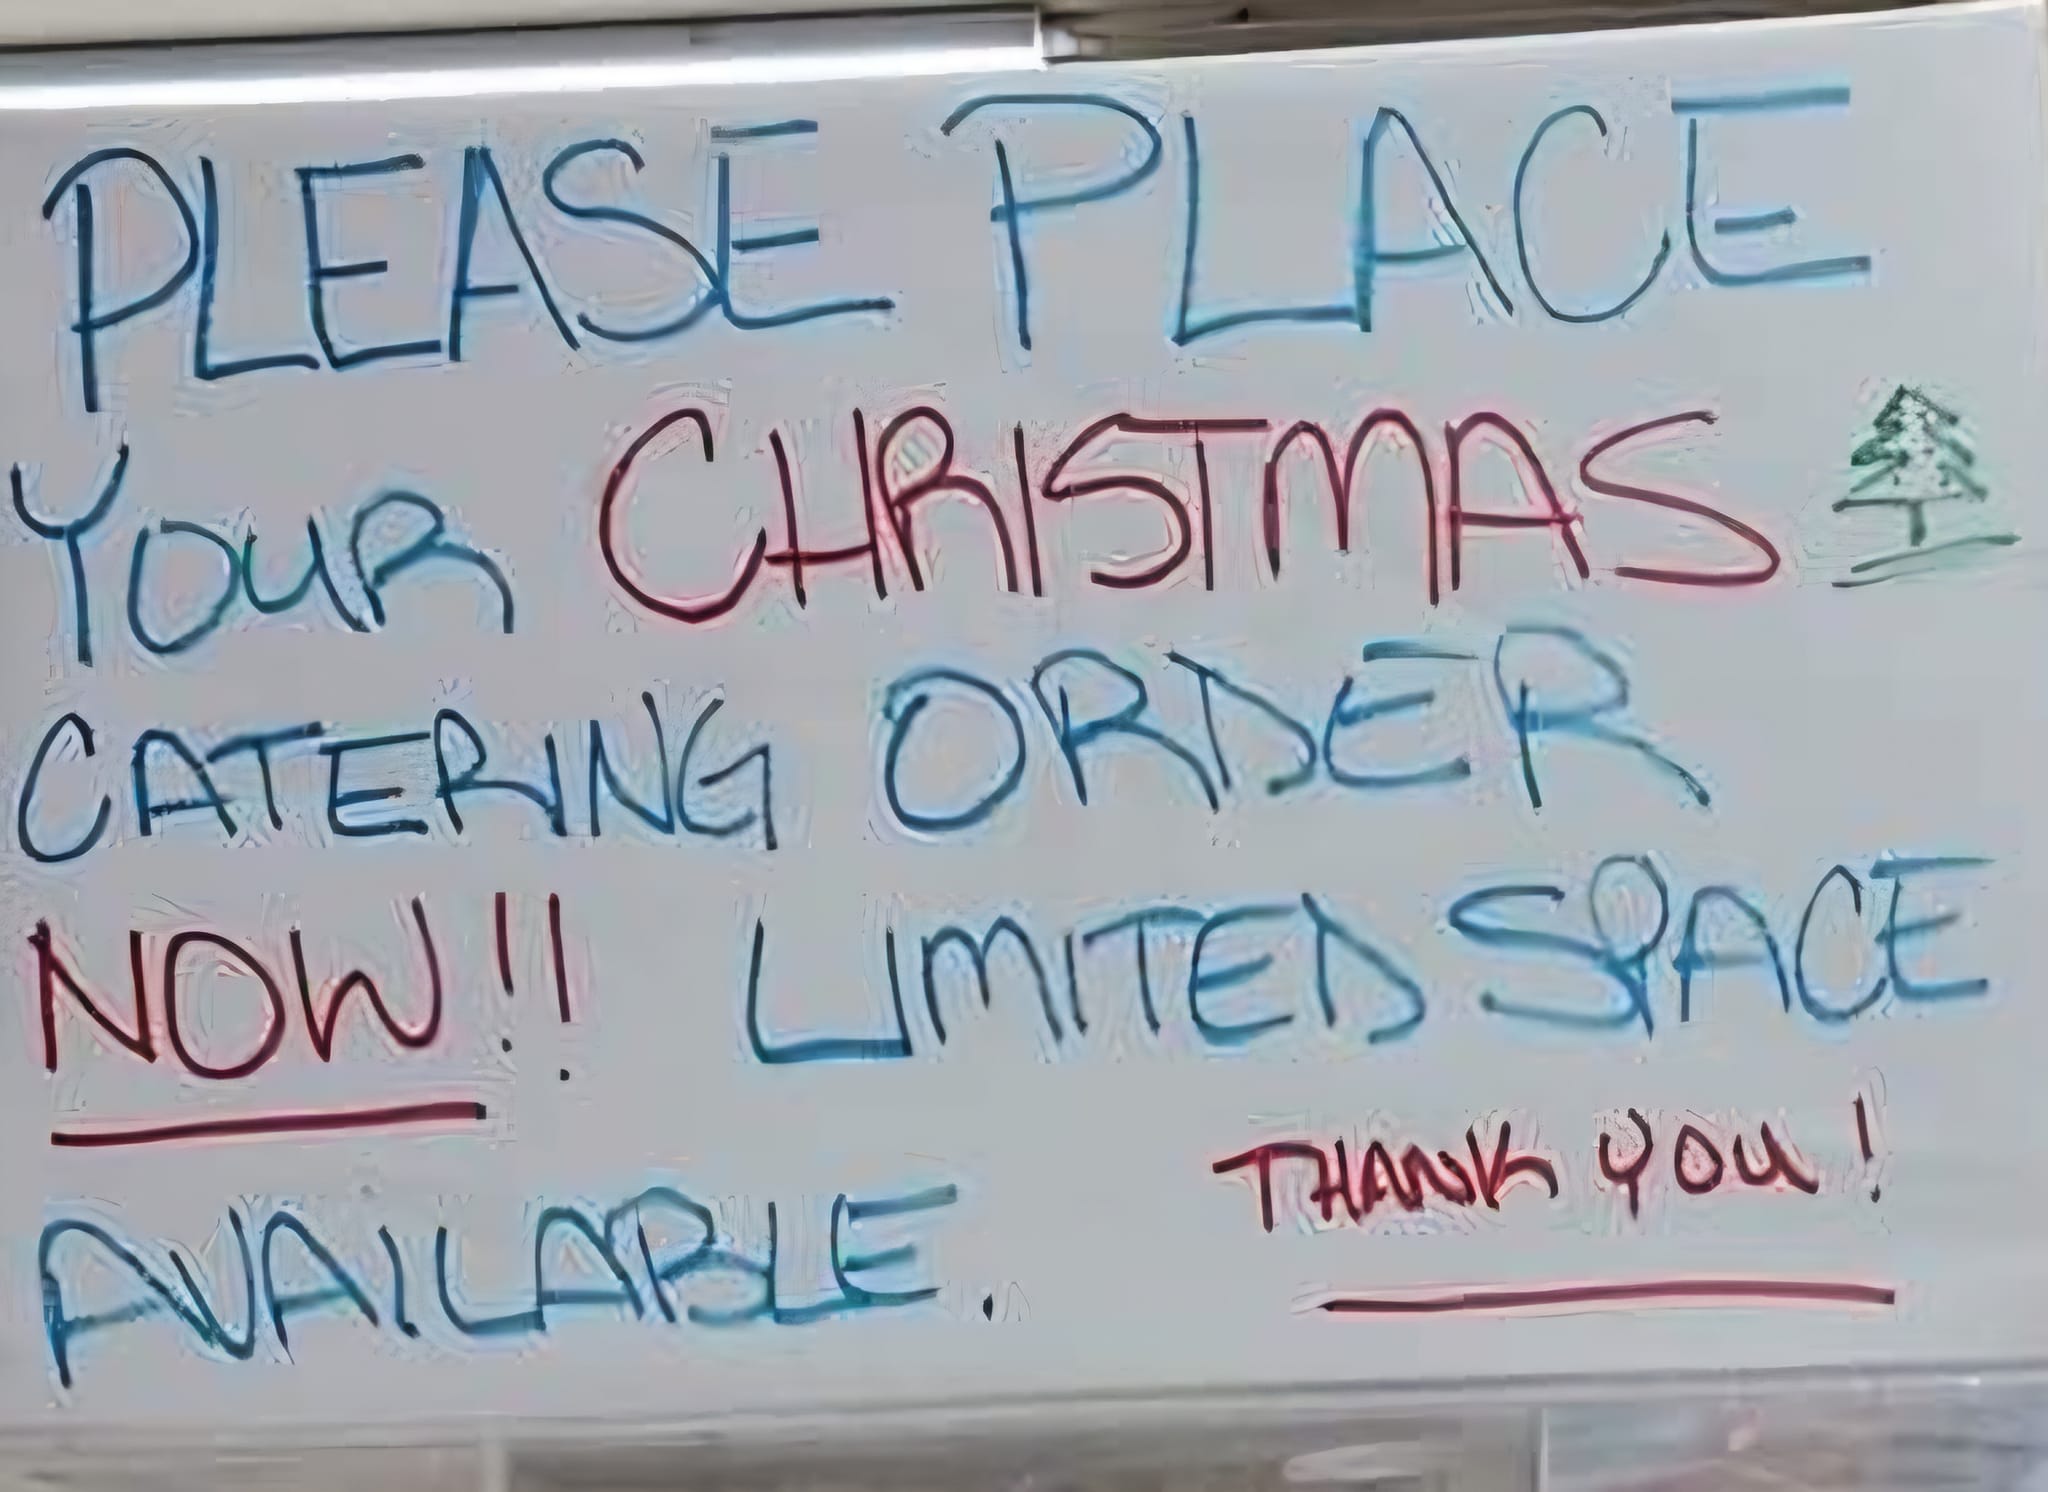 PLEASE PLACE
YOUR CHRISTMAS
CATERING ORDER
NOW!! LIMITED SPACE
AVAILABLE.
THANK YOU!